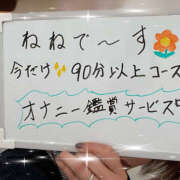 ねねで〜す
今だけ✨90分以上コース
オナニー鑑賞サービス